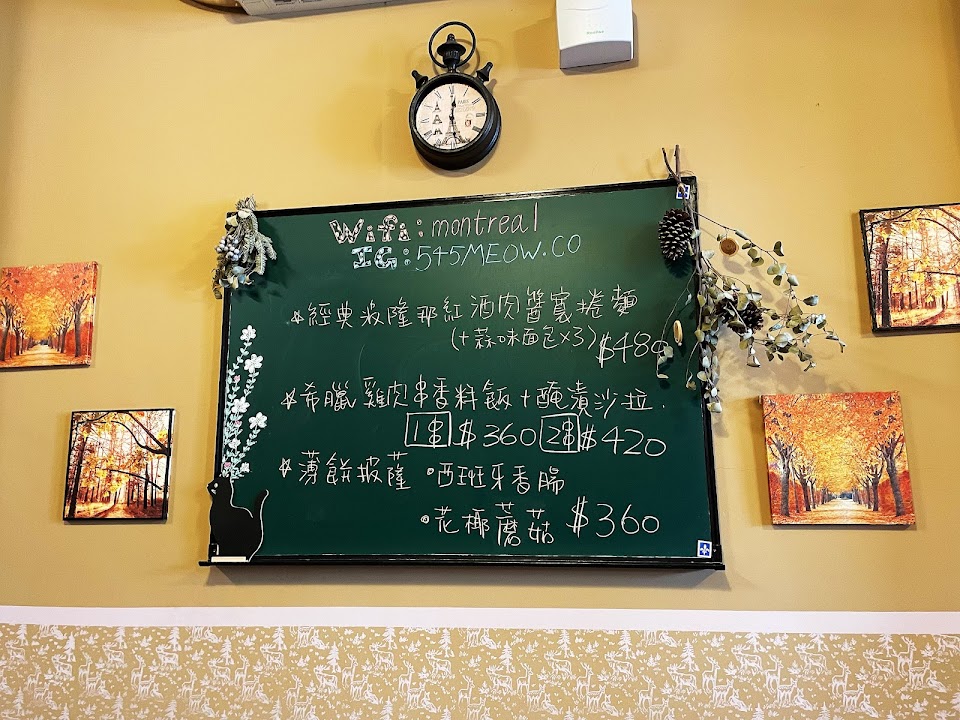 Wifi:montreal
IG:545MEOW.CO
經典波隆那紅酒肉醬寬捲麵
(+蒜味面包x3) $480
希臘雞肉串香料飯+醃漬沙拉.
1串 $360 2串 $420
薄餅披薩 •西班牙香腸
•花椰蘑菇 $360